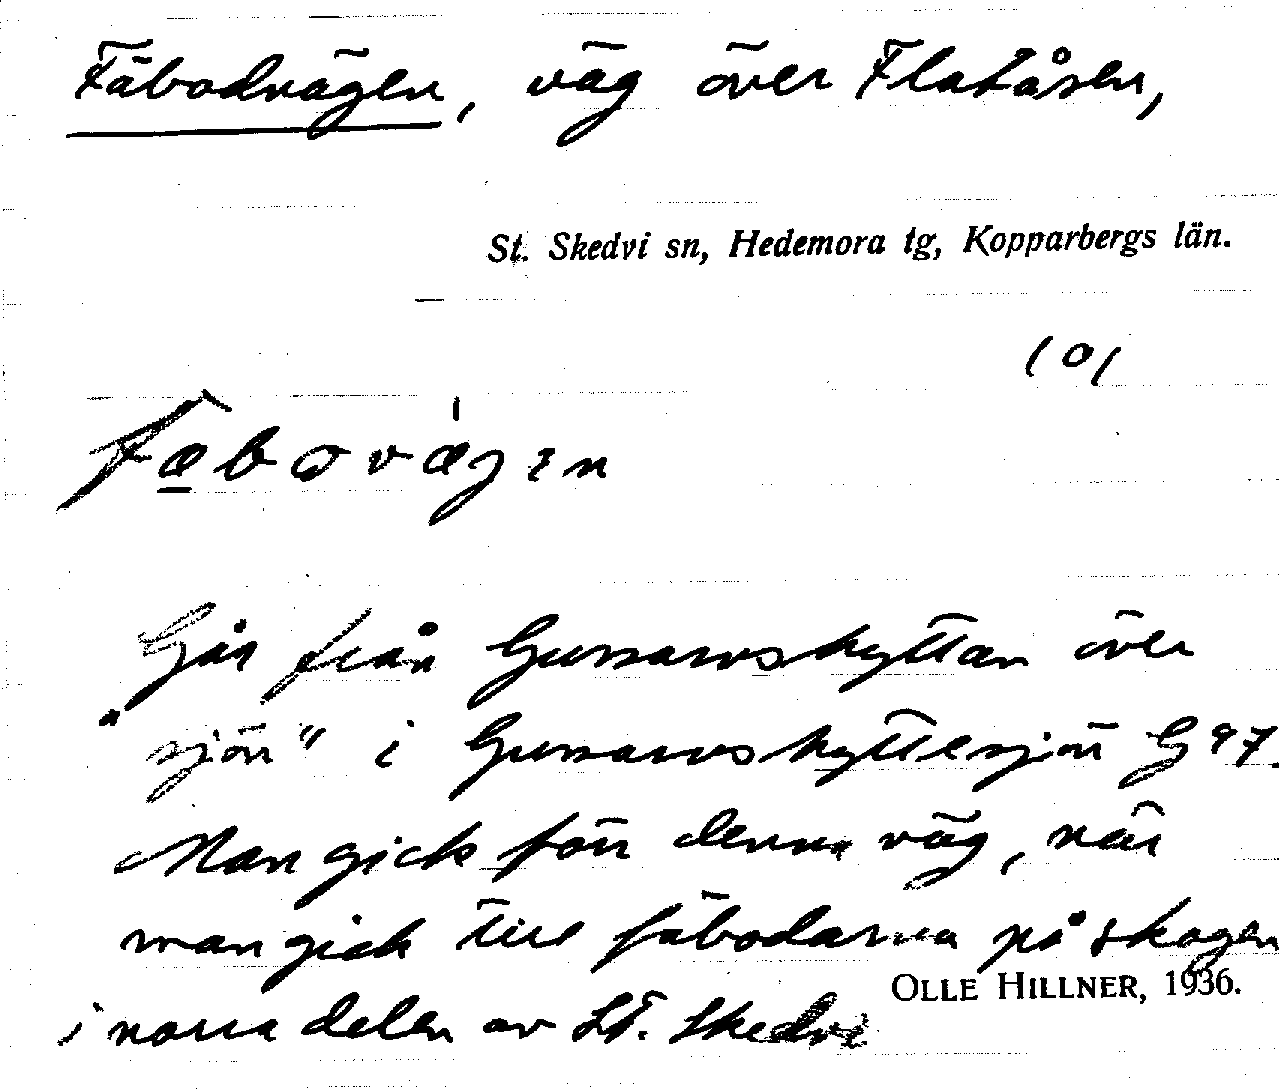 Fäbodvägen, väg över Flatåsen,
St. Skedvi sn, Hedemora tg, Kopparbergs län.
101
fæbovägen
Går från Gussarvshyttan över
"sjön" i Gussarvshyttesjön G 97.
Man gick förr denna väg, när
man gick till fäbodarna på skogen
OLLE HILLNER, 1936.
i norra delen av St. Skedvi